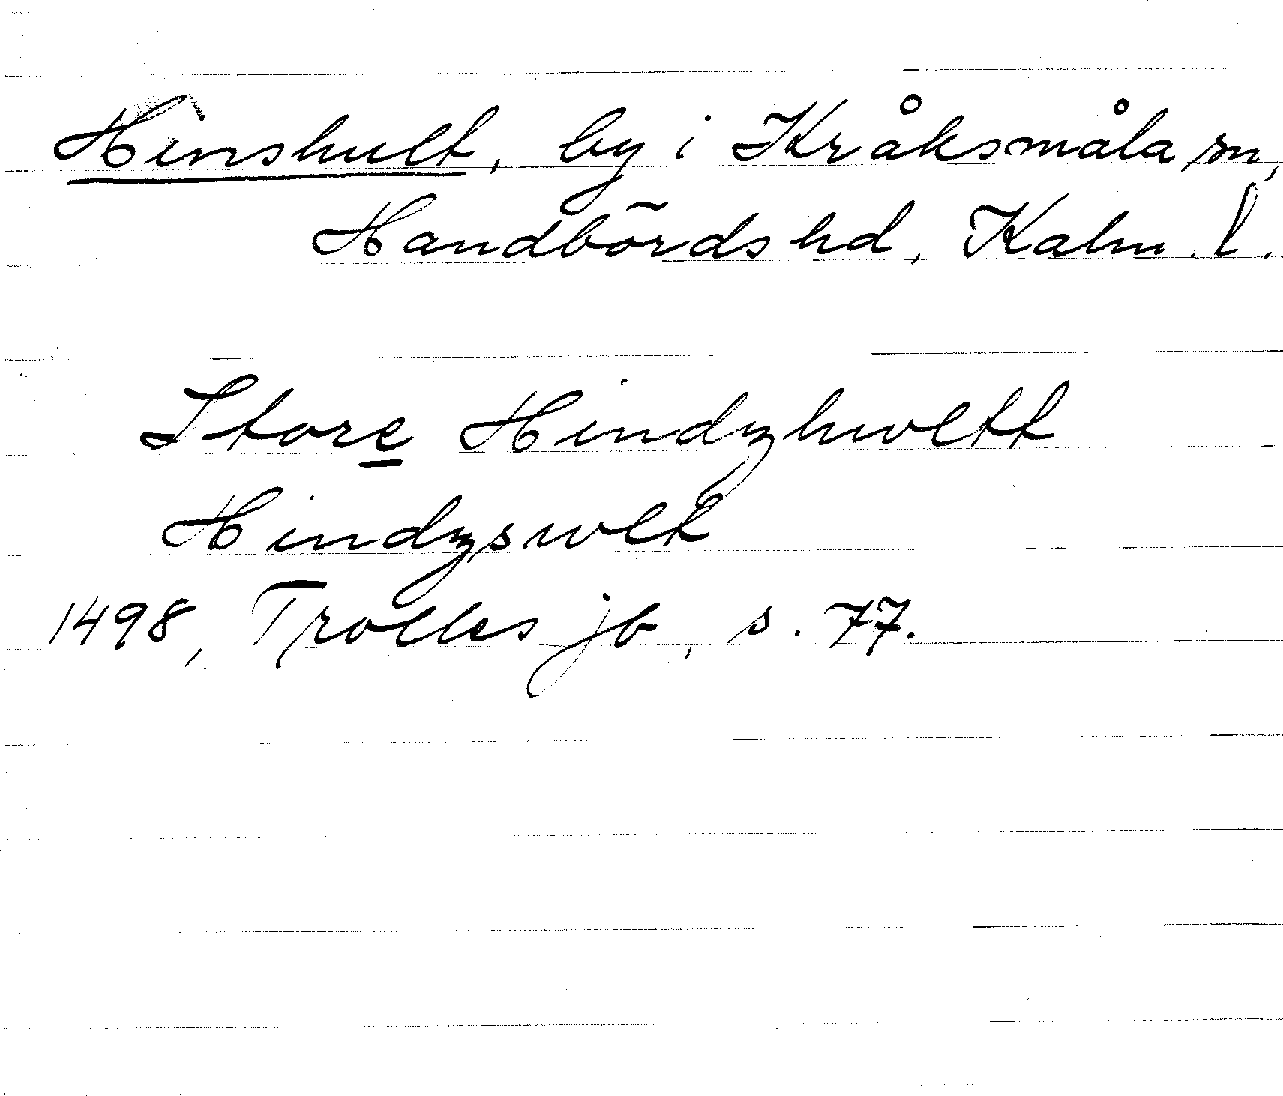 Hinshult, by i Kråksmåla sn,
Handbörds hd, Kalm. l.
Store Hindzhwltt
Hindzswlt
1498, Trolles jb, s. 77.